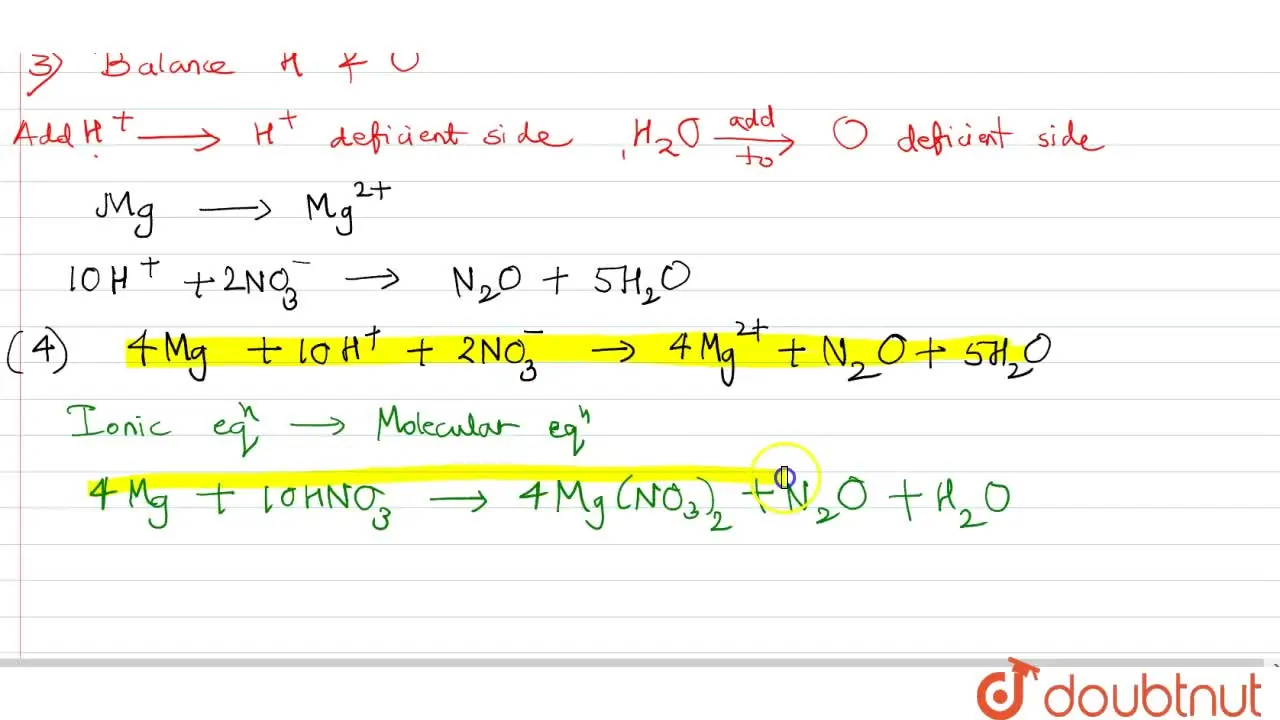 3) Balance H & O
Add H⁺ ⟶ H⁺ deficient side , H₂O add⟶to O deficient side
Mg ⟶ Mg²⁺
10H⁺ + 2NO₃⁻ ⟶ N₂O + 5H₂O
(4) 4Mg + 10H⁺ + 2NO₃⁻ → 4Mg²⁺ + N₂O + 5H₂O
Ionic eqⁿ ⟶ Molecular eqⁿ
4Mg + 10HNO₃ ⟶ 4Mg(NO₃)₂ + N₂O + H₂O
doubtnut